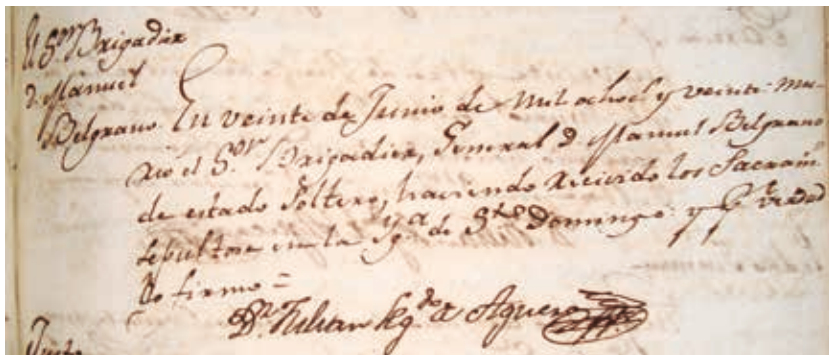 El S.or Brigadier
d.n Manuel
Belgrano
En veinte de Junio de mil ochoc.s y veinte: Mu-
rió el S.or Brigadier, General d.n Manuel Belgrano
de estado soltero, haviendo recivido los Sacram.tos
sepultose en la Yg.a de S.to Domingo: y p.r verdad
lo firmo =
D.r Julian Seg.do de Aguero
Justo